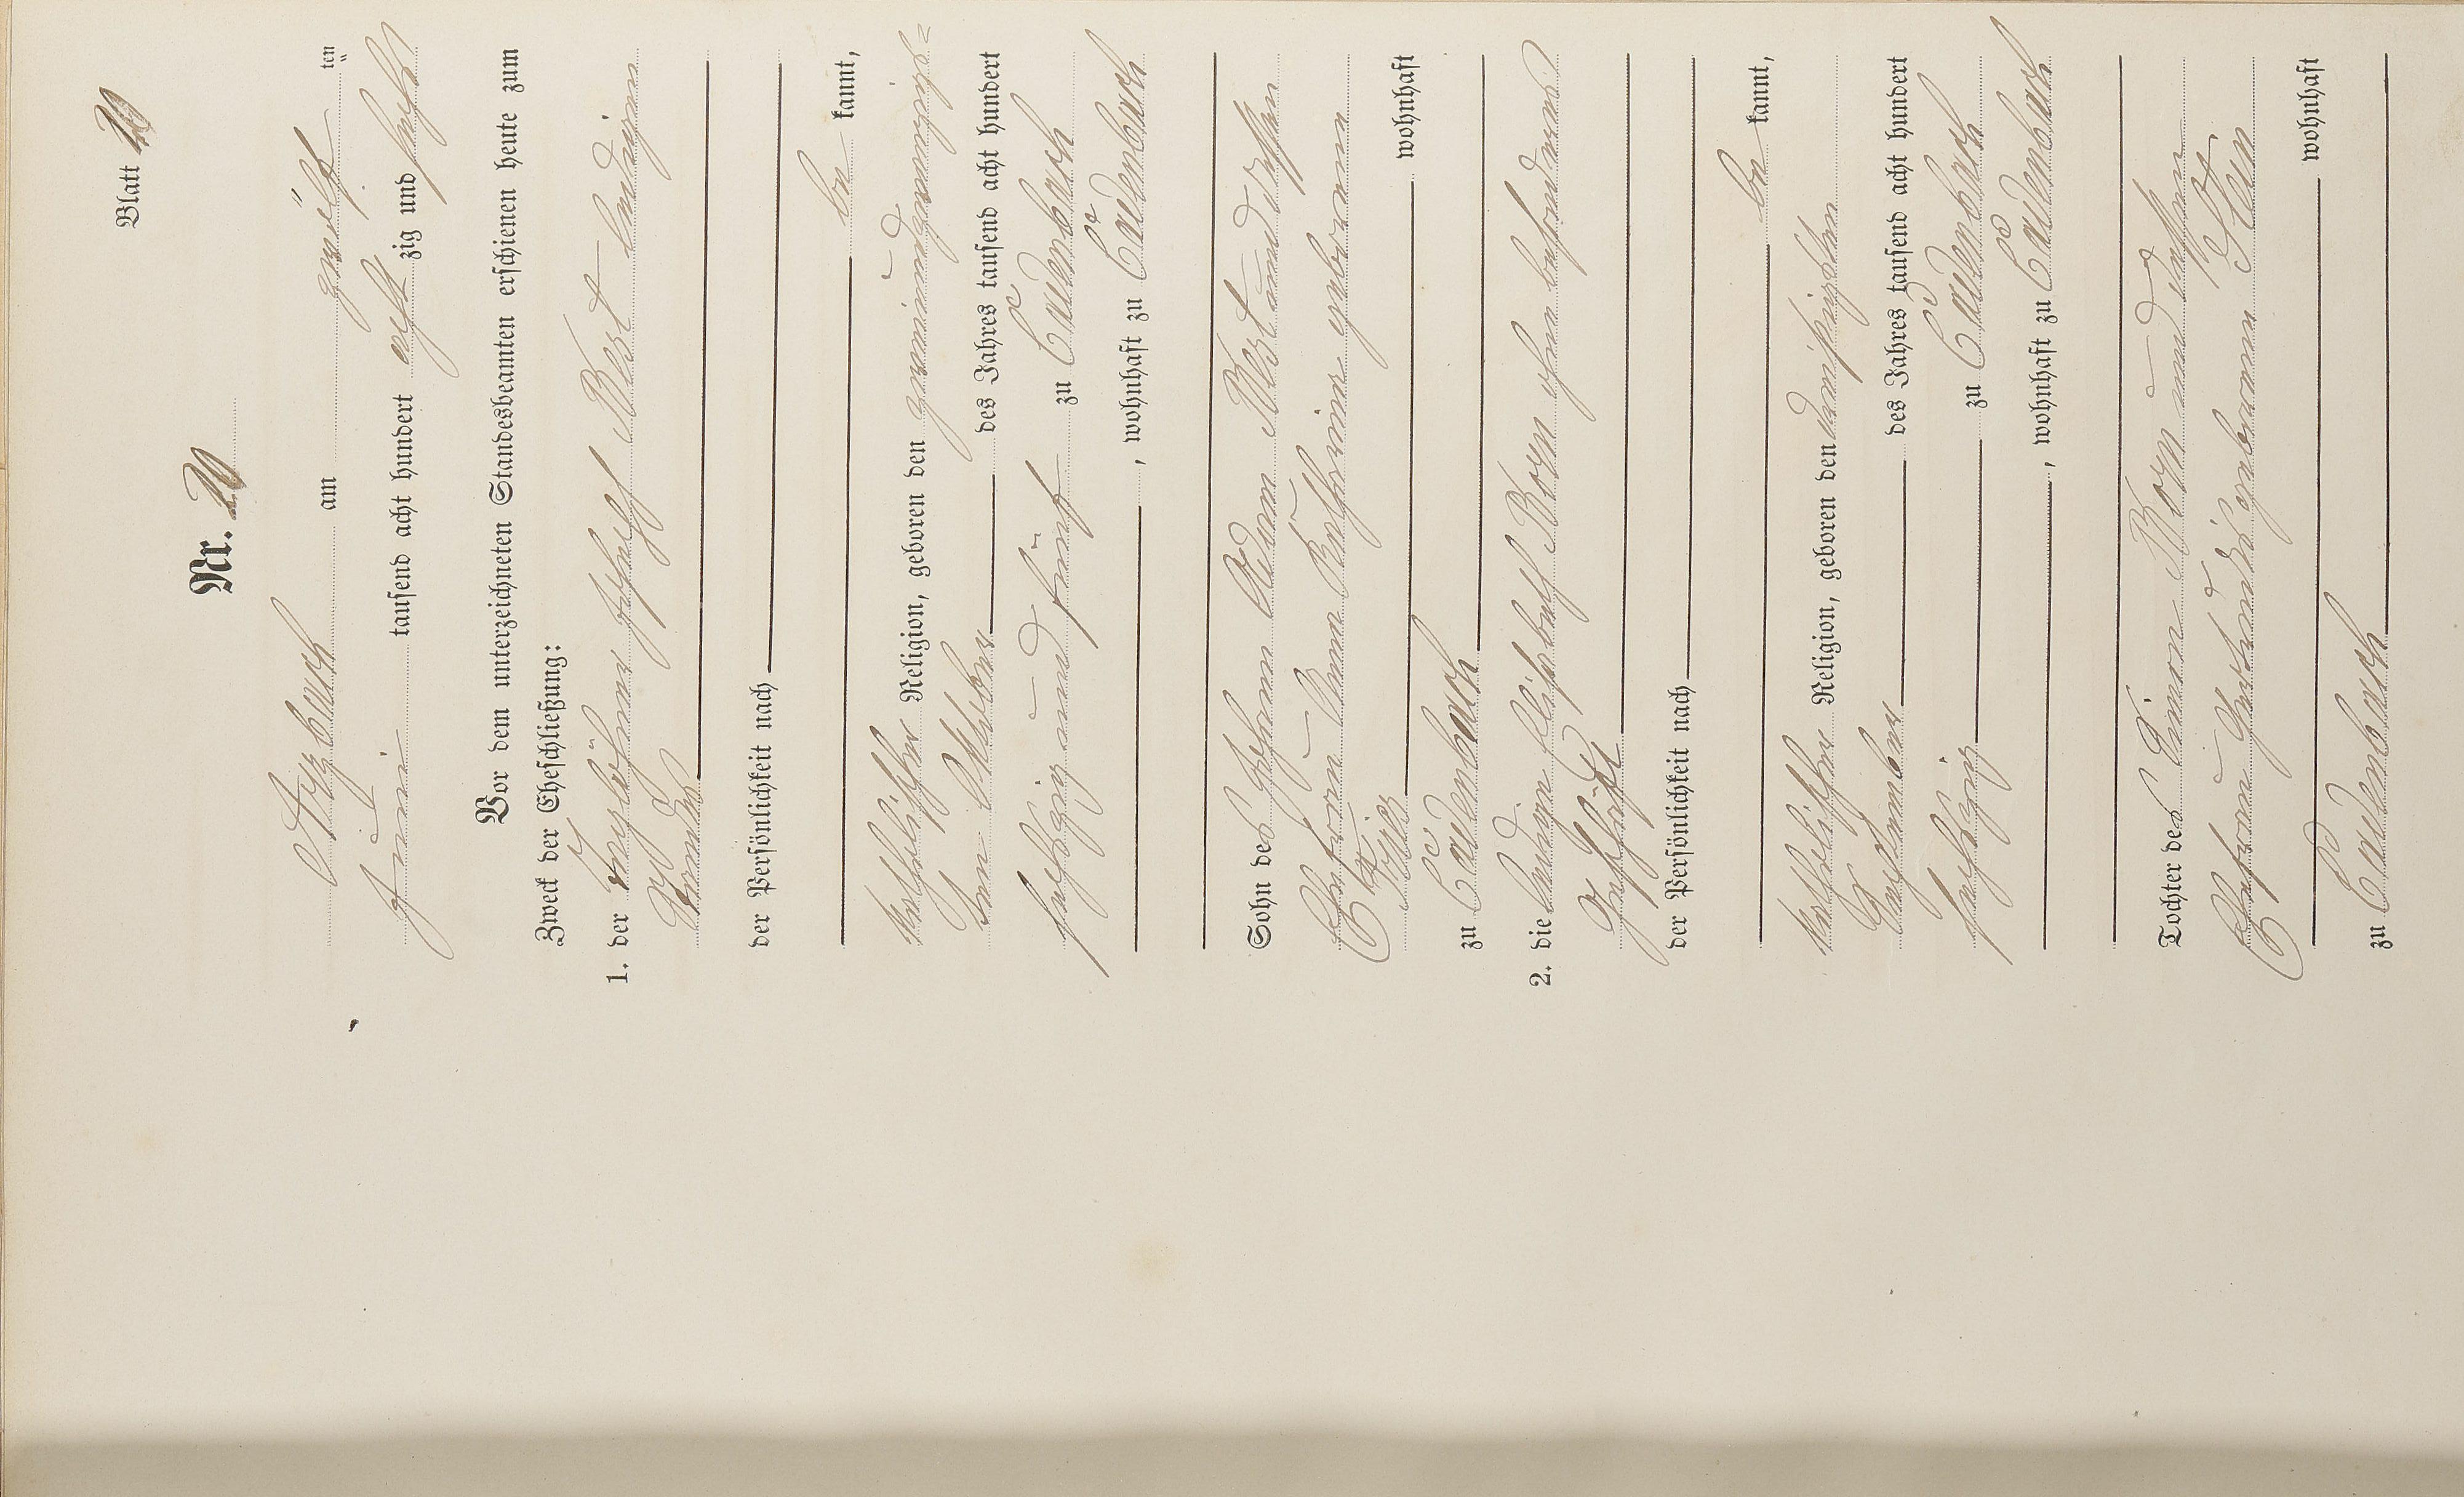 Blatt 20
Nr. 20
Atzbach am zwölften
Juni tausend acht hundert acht zig und sechs
Vor dem unterzeichneten Standesbeamten erschienen heute zum
Zweck der Eheschließung:
1. der Joseph Mert ledigen
Standes
der Persönlichkeit nach
be kannt,
katholischer Religion, geboren den zweiundzwanzig-
sten Oktober des Jahres tausend acht hundert
sechszig und fünf zu Caldenbach
, wohnhaft zu Caldenbach
Sohn des Johann Adam und dessen
Ehefrau Anna Katharina geborenen
wohnhaft
zu Caldenbach
2. die ledigen Elisabeth Born ohne besonderes
Geschäft
der Persönlichkeit nach
be kannt,
katholischer Religion, geboren den dreißigsten
September des Jahres tausend acht hundert
sechszig zu Caldenbach
, wohnhaft zu Caldenbach
Tochter des Simon Born und dessen
Ehefrau geborenen Stein
wohnhaft
zu Caldenbach